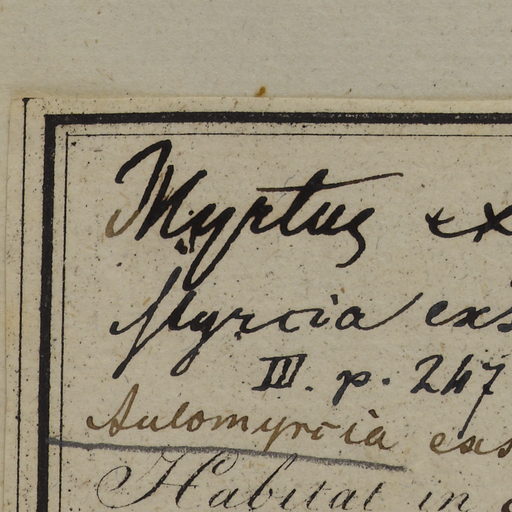 Myrtus ex
Myrcia exs
III. p. 247
Aulomyrcia exs
Habitat in